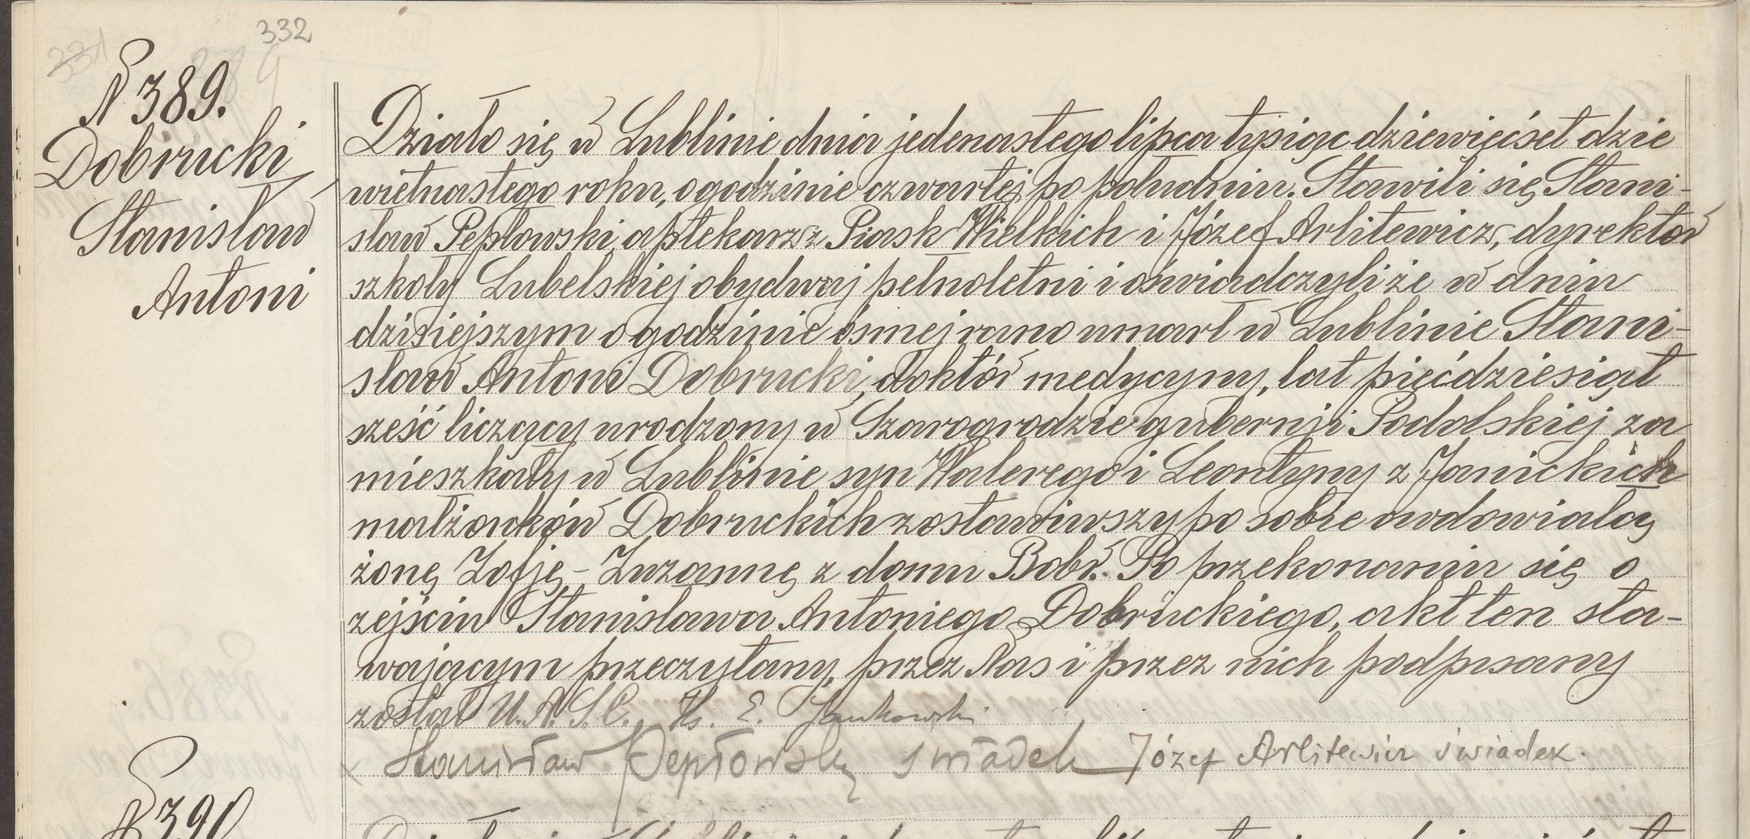 332
331
N 389.
Dobrucki
Stanisław
Antoni
Działo się w Lublinie dnia jedenastego lipca tysiąc dziewięćset dzie
więtnastego roku, o godzinie czwartej po południu. Stawili się Stani-
sław Pepłowski, aptekarz z Piask Wielkich i Józef Arlitewicz, dyrektor
szkoły Lubelskiej obydwaj pełnoletni i oświadczyli że w dniu
dzisiejszym o godzinie ósmej rano umarł w Lublinie Stani-
sław Antoni Dobrucki, doktór medycyny, lat pięćdziesiąt
sześć liczący urodzony w Szarogrodzie gubernji Podolskiej za
mieszkały w Lublinie syn Walerego i Leontyny z Janickich
małżonków Dobruckich zostawiwszy po sobie owdowiałą
żonę Zofję-Zuzannę z domu Bobr. Po przekonaniu się o
zejściu Stanisława Antoniego Dobruckiego, akt ten sta-
wającym przeczytany, przez Nas i przez nich podpisany
został U.A.S.C. Ks. E. Jankowski
Stanisław Pepłowski świadek Józef Arlitewicz świadek.
N 390